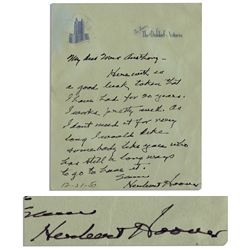 The Waldorf-Astoria
My dear Susan Anthony -
Herewith is
a good luck token that
I have had for 30 years.
It works pretty well. As
I don't need it for very
long I would like
somebody like you who
has still a long ways
to go to have it.
Herbert Hoover
Herbert Hoover